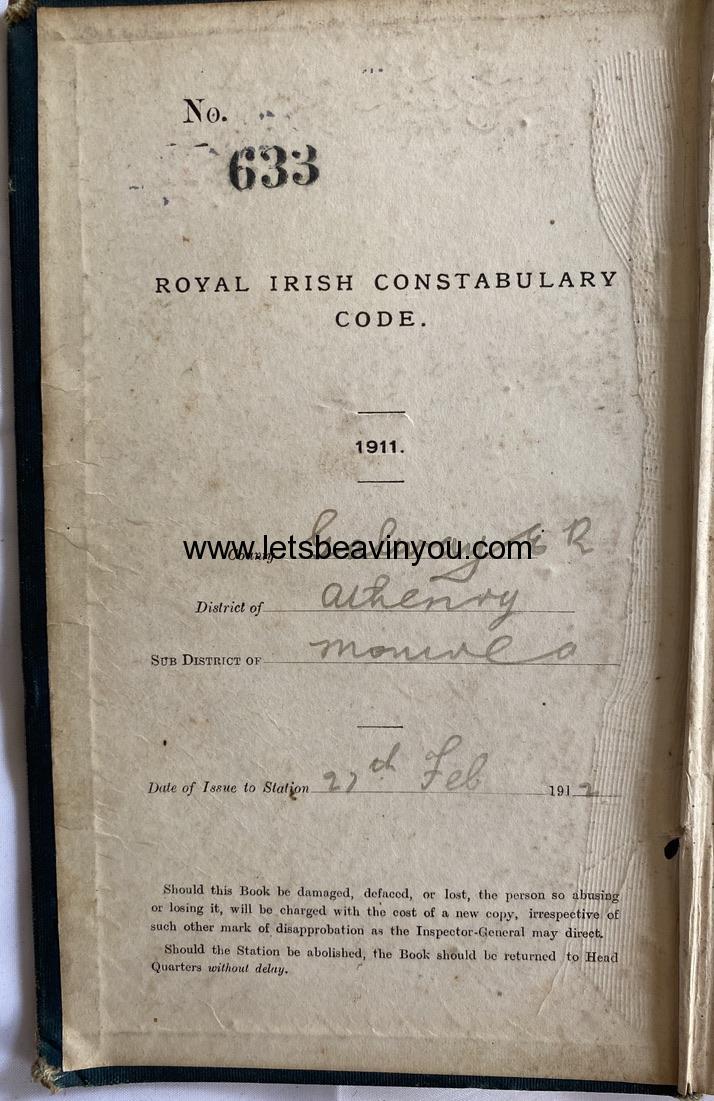 No.
633
ROYAL IRISH CONSTABULARY
CODE.
1911.
www.letsbeavinyou.com
County Galway E R
District of Athenry
SUB DISTRICT OF Monivea
Date of Issue to Station 27th Feb 1912
Should this Book be damaged, defaced, or lost, the person so abusing
or losing it, will be charged with the cost of a new copy, irrespective of
such other mark of disapprobation as the Inspector-General may direct.
Should the Station be abolished, the Book should be returned to Head
Quarters without delay.